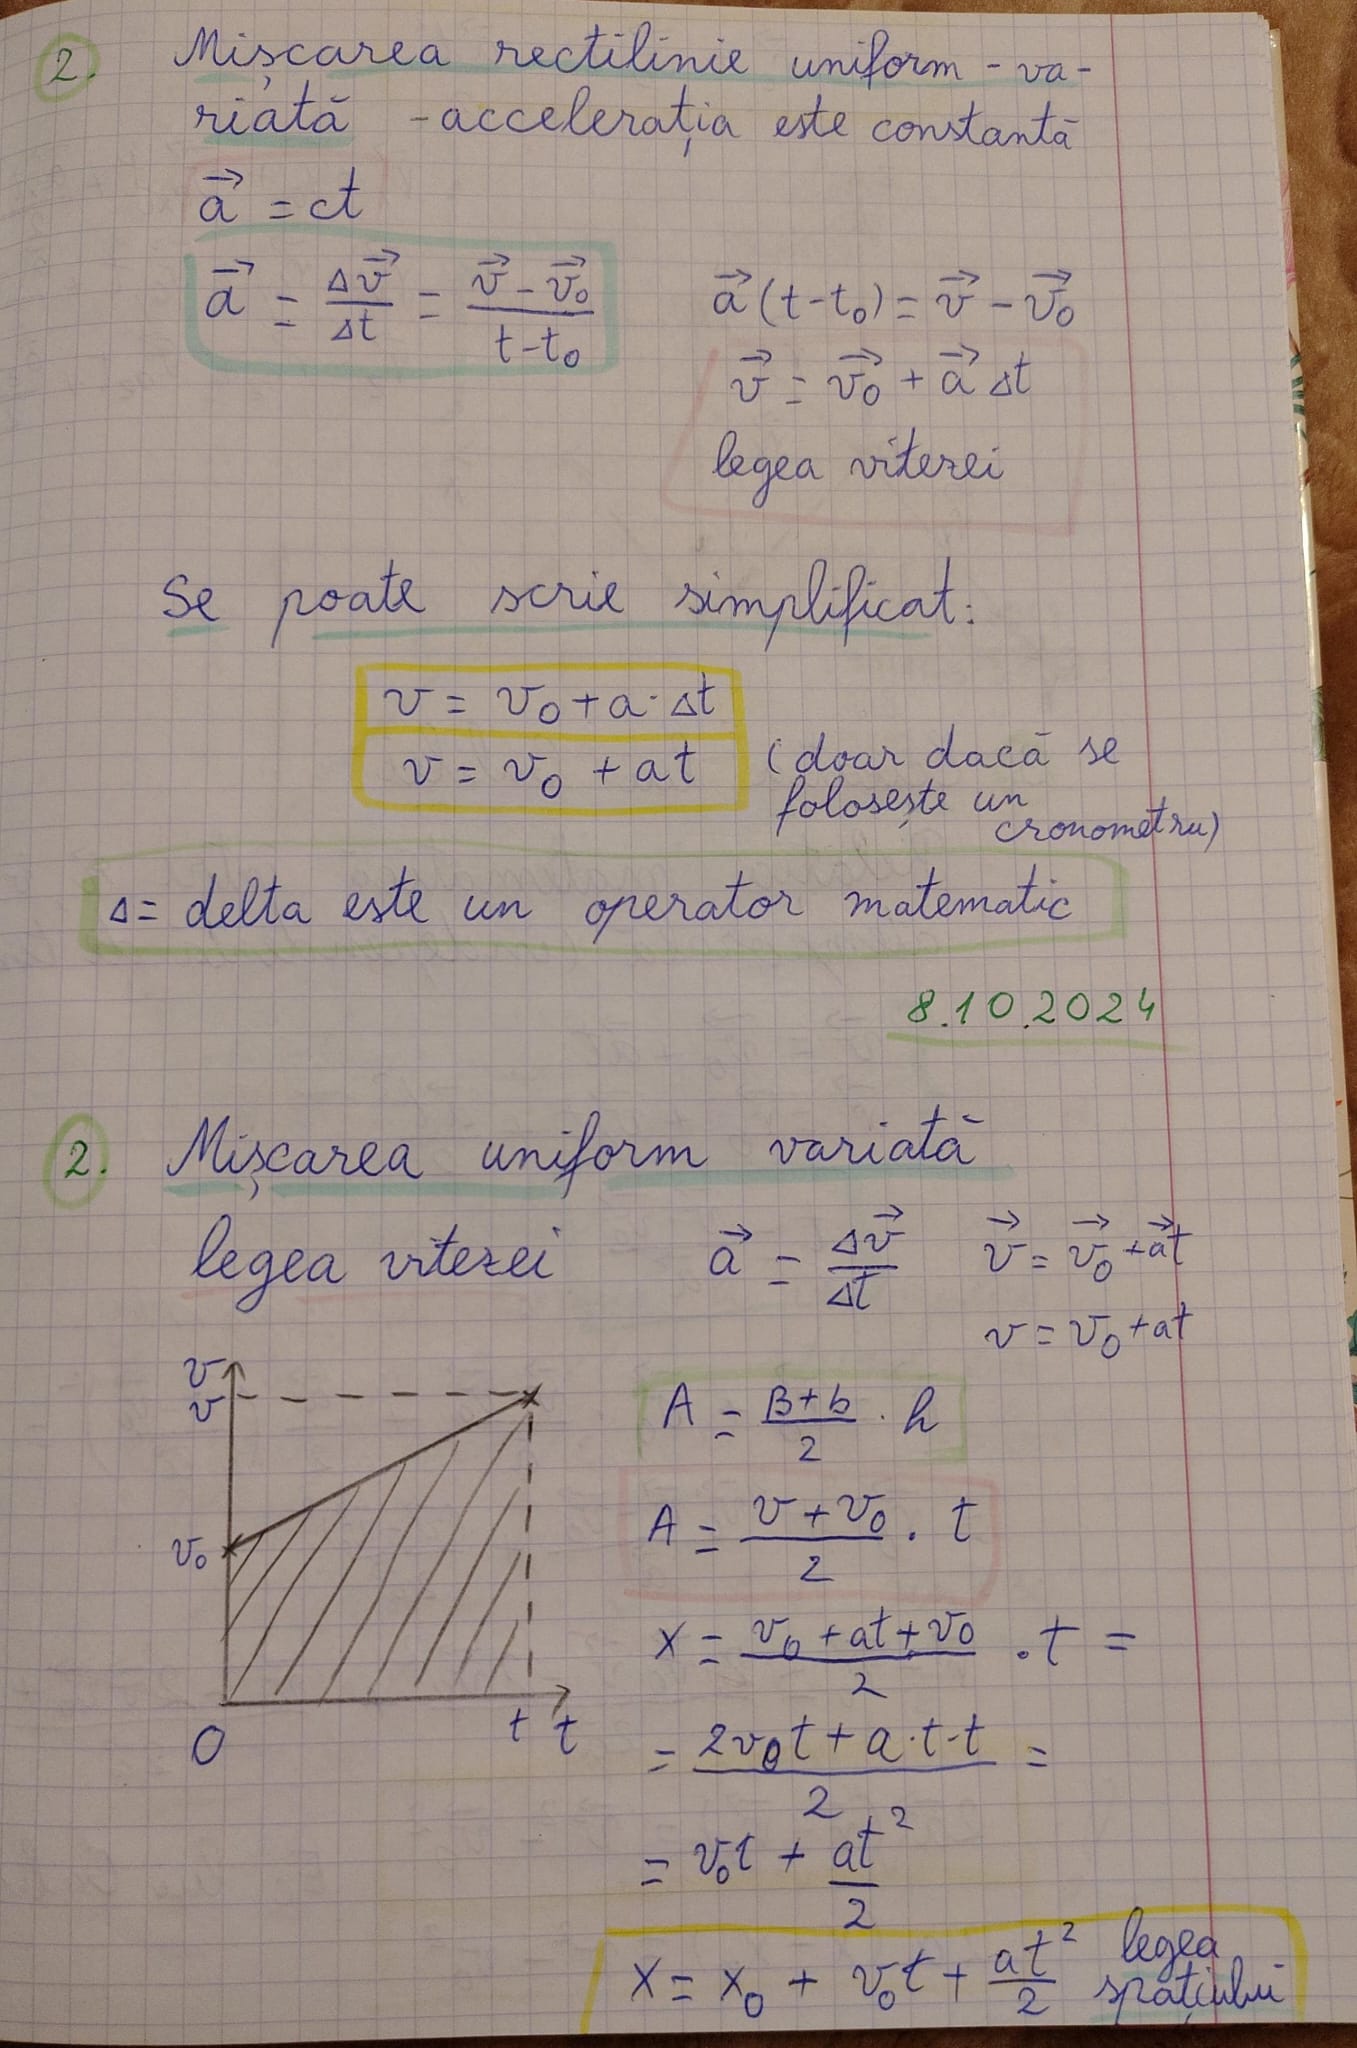 2. Mișcarea rectilinie uniform - va-
riată - accelerația este constantă
a⃗ = ct
a⃗ = Δv⃗/Δt = (v⃗ - v⃗₀)/(t - t₀)
a⃗ (t - t₀) = v⃗ - v⃗₀
v⃗ = v⃗₀ + a⃗ Δt
legea vitezei
Se poate scrie simplificat:
v = v₀ + a · Δt
v = v₀ + at (doar dacă se
folosește un
cronometru)
Δ = delta este un operator matematic
8.10.2024
2. Mișcarea uniform variată
legea vitezei a⃗ = Δv⃗/Δt v⃗ = v⃗₀ + a⃗t
v = v₀ + at
v
v
v₀
0
t t
A = (B + b)/2 · h
A = (v + v₀)/2 · t
x = (v₀ + at + v₀)/2 · t =
= (2v₀t + a · t · t)/2 =
= v₀t + at²/2
x = x₀ + v₀t + at²/2 legea
spațiului